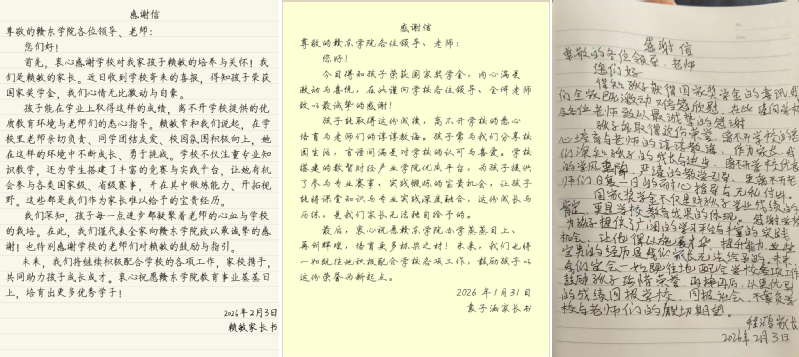 感谢信
尊敬的赣东学院各位领导、老师：
您们好！
首先，衷心感谢学校对我家孩子赖敏的培养与关怀！我
们是赖敏的家长。近日收到学校寄来的喜报，得知孩子荣获
国家奖学金，我们心情无比激动与自豪。
孩子能在学业上取得这样的成绩，离不开学校提供的优
质教育环境与老师们的悉心指导。赖敏常和我们说起，在学
校里老师亲切负责、同学团结友爱、校园氛围积极向上，她
在这样的环境中不断成长、勇于挑战。学校不仅注重专业知
识教学，还为学生搭建了丰富的竞赛与实践平台，让她有机
会参与各类国家级、省级赛事，并在其中锻炼能力、开拓视
野。这些都是我们作为家长难以给予的宝贵经历。
我们深知，孩子每一点进步都凝聚着老师的心血与学校
的栽培。在此，我们谨代表全家向赣东学院致以最诚挚的感
谢！也特别感谢学校的老师们对赖敏的鼓励与指引。
未来，我们将继续积极配合学校的各项工作，家校携手，
共同助力孩子成长成才。衷心祝愿赣东学院教育事业蒸蒸日
上，培育出更多优秀学子！
2026年2月3日
赖敏家长书
感谢信
尊敬的赣东学院各位领导、老师：
您好！
今日得知孩子荣获国家奖学金，内心满是
激动与喜悦，在此谨向学校各位领导、全体老师
致以最诚挚的感谢！
孩子能取得这份成绩，离不开学校的悉心
培育与老师们的谆谆教诲。孩子常与我们分享校
园生活，言语间满是对学校的认可与喜爱。学校
搭建的数智财经产业学院优质平台，为孩子提供
了参与专业赛事、实践锻炼的宝贵机会，让孩子
能将课堂知识与专业实践深度融合，这份成长与
历练，是我们家长无法独自给予的。
最后，衷心祝愿赣东学院办学蒸蒸日上、
再创辉煌，培育更多栋梁之材！未来，我们也将
一如既往地积极配合学校各项工作，鼓励孩子以
这份荣誉为新起点。
2026年1月31日
袁子涵家长书
感谢信
尊敬的各位领导、老师
您们好
得知孩子获得国家奖学金的喜讯，我
们全家既激动又倍感欣慰，在此谨向学校
各位老师致以最诚挚的感谢
孩子能取得这份荣誉，离不开学校的悉
心培育与老师的谆谆教诲，作为家长，我
们深知孩子的成长与进步，离不开学校优良
的学风 严谨的教学引导，更离不开老
师们日复一日的耐心指导与无私付出。
国家奖学金不仅是对孩子学业成绩的
肯定，更是学校教育成果的体现。感谢学校
为孩子提供了广阔的学习平台和丰富的实践
机会，让他得以施展才华、提升能力，这些
宝贵的经历是我们家长无法给予的，未来，
我们定会一如既往地配合学校各项工作
鼓励孩子珍惜荣誉、再接再厉，以更优异
的成绩回报学校、回报社会、不辜负学
校与老师们的殷切期望。
家长
2026年2月3日